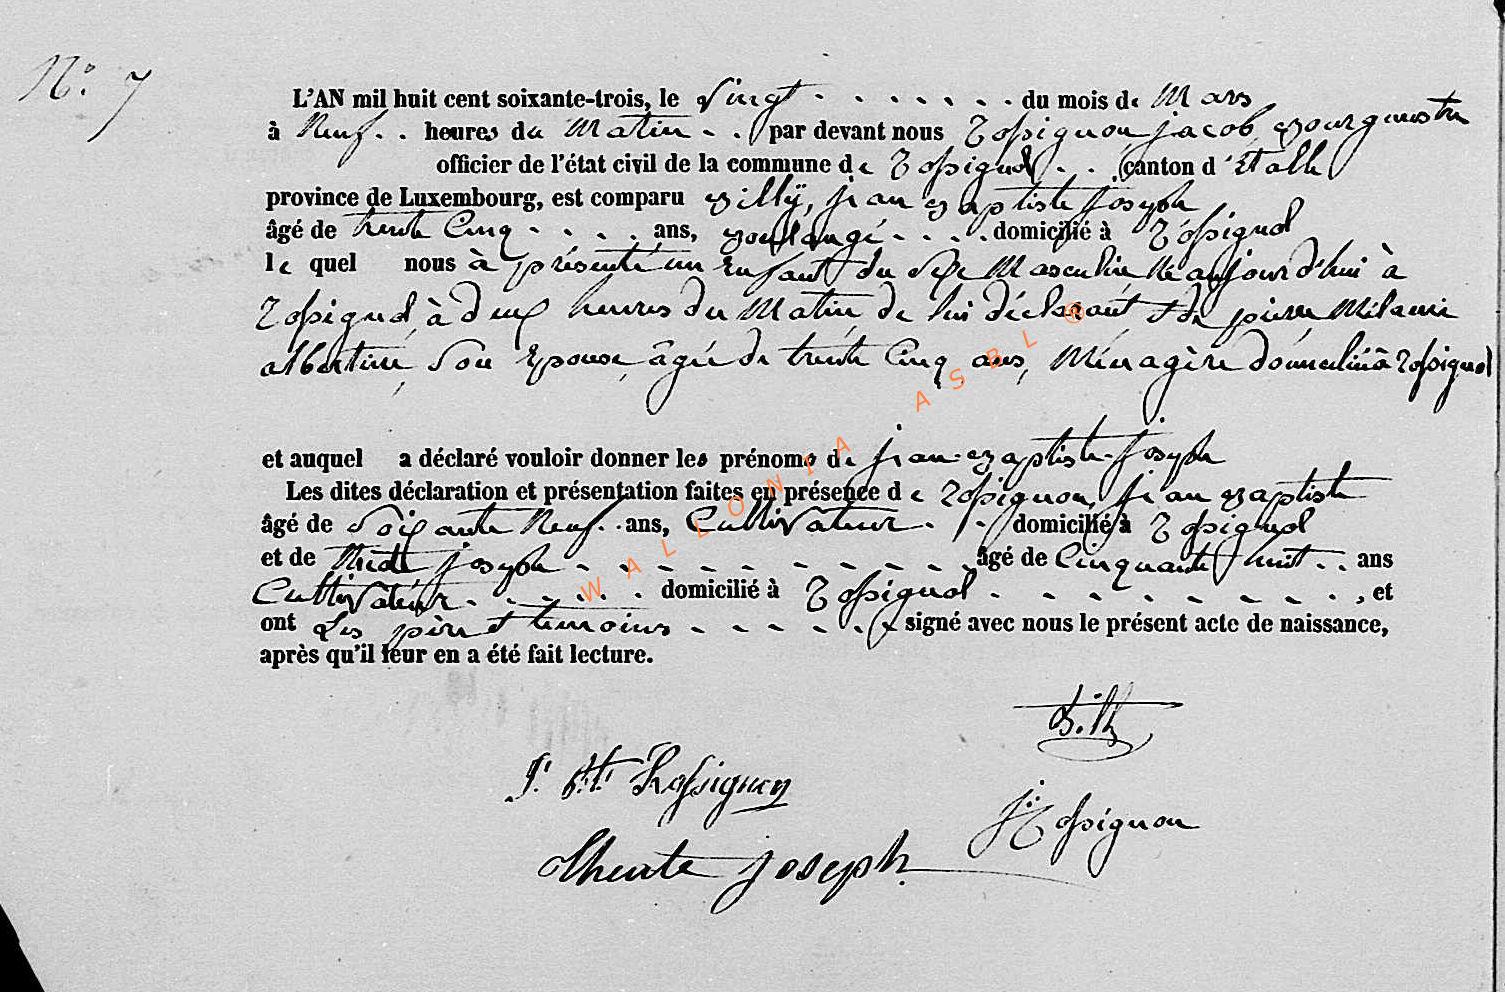 N° 7
L'AN mil huit cent soixante-trois, le vingt du mois de Mars
à Neuf heures du Matin par devant nous Rossignon jacob Bourgmestre
officier de l'état civil de la commune de Rossignol canton d'Etalle
province de Luxembourg, est comparu Billy, jean Baptiste joseph
âgé de trente Cinq ans, Boulangé domicilié à Rossignol
le quel nous à présenté un Enfant du Sexe Masculin Né aujourd'hui à
Rossignol, à deux heures du Matin de lui déclarant et de pierre Mélanie
albertine, Son Epouse, âgée de trente Cinq ans, Ménagère domicilié à Rossignol
et auquel a déclaré vouloir donner les prénoms de jean-Baptiste-joseph
Les dites déclaration et présentation faites en présence de Rossignon, jean Baptiste
âgé de Soixante Neuf ans, Cultivateur domicilié à Rossignol
et de joseph âgé de Cinquante huit ans
Cultivateur domicilié à Rossignol, et
ont Les père et temoins signé avec nous le présent acte de naissance,
après qu'il leur en a été fait lecture.
J. Bte Rossignon
J. Rossignon
joseph
WALLONIA ASBL ®